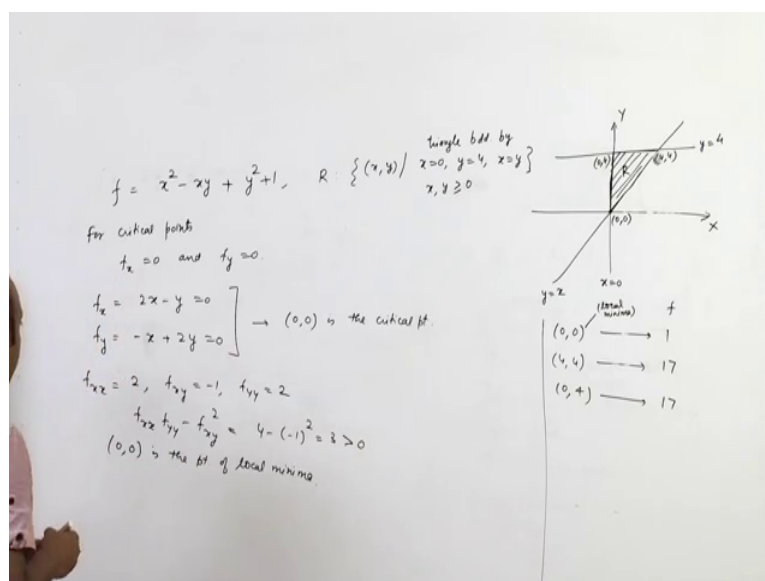 f = x² - xy + y² + 1, R : {(x,y) / triangle bdd by
x=0, y=4, x=y}
x, y ≥ 0
For critical points
fₓ = 0 and f_y = 0.
fₓ = 2x - y = 0
f_y = -x + 2y = 0 ] → (0,0) is the critical pt.
fₓₓ = 2, f_xy = -1, f_yy = 2
fₓₓ f_yy - f_xy² = 4 - (-1)² = 3 > 0
(0,0) is the pt of local minima.
Y
y = 4
(0,4)
(4,4)
R
(0,0)
X
x=0
y=x
(local minima) f
(0,0) → 1
(4,4) → 17
(0,4) → 17